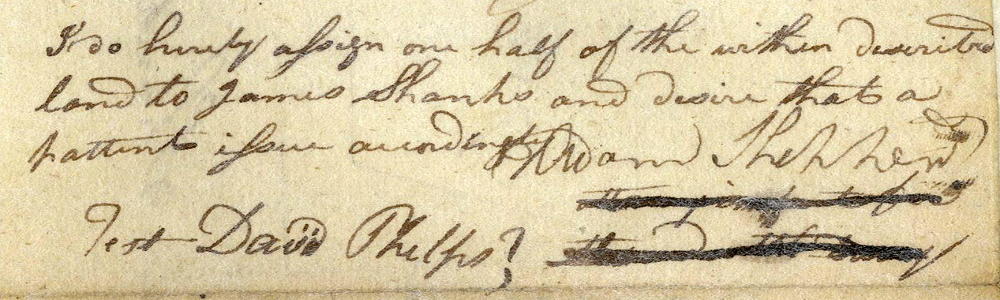 I do hereby assign one half of the within described
land to James Shanks and desire that a
pattent issue accordingly Adam Shepherd
Test David Phelps